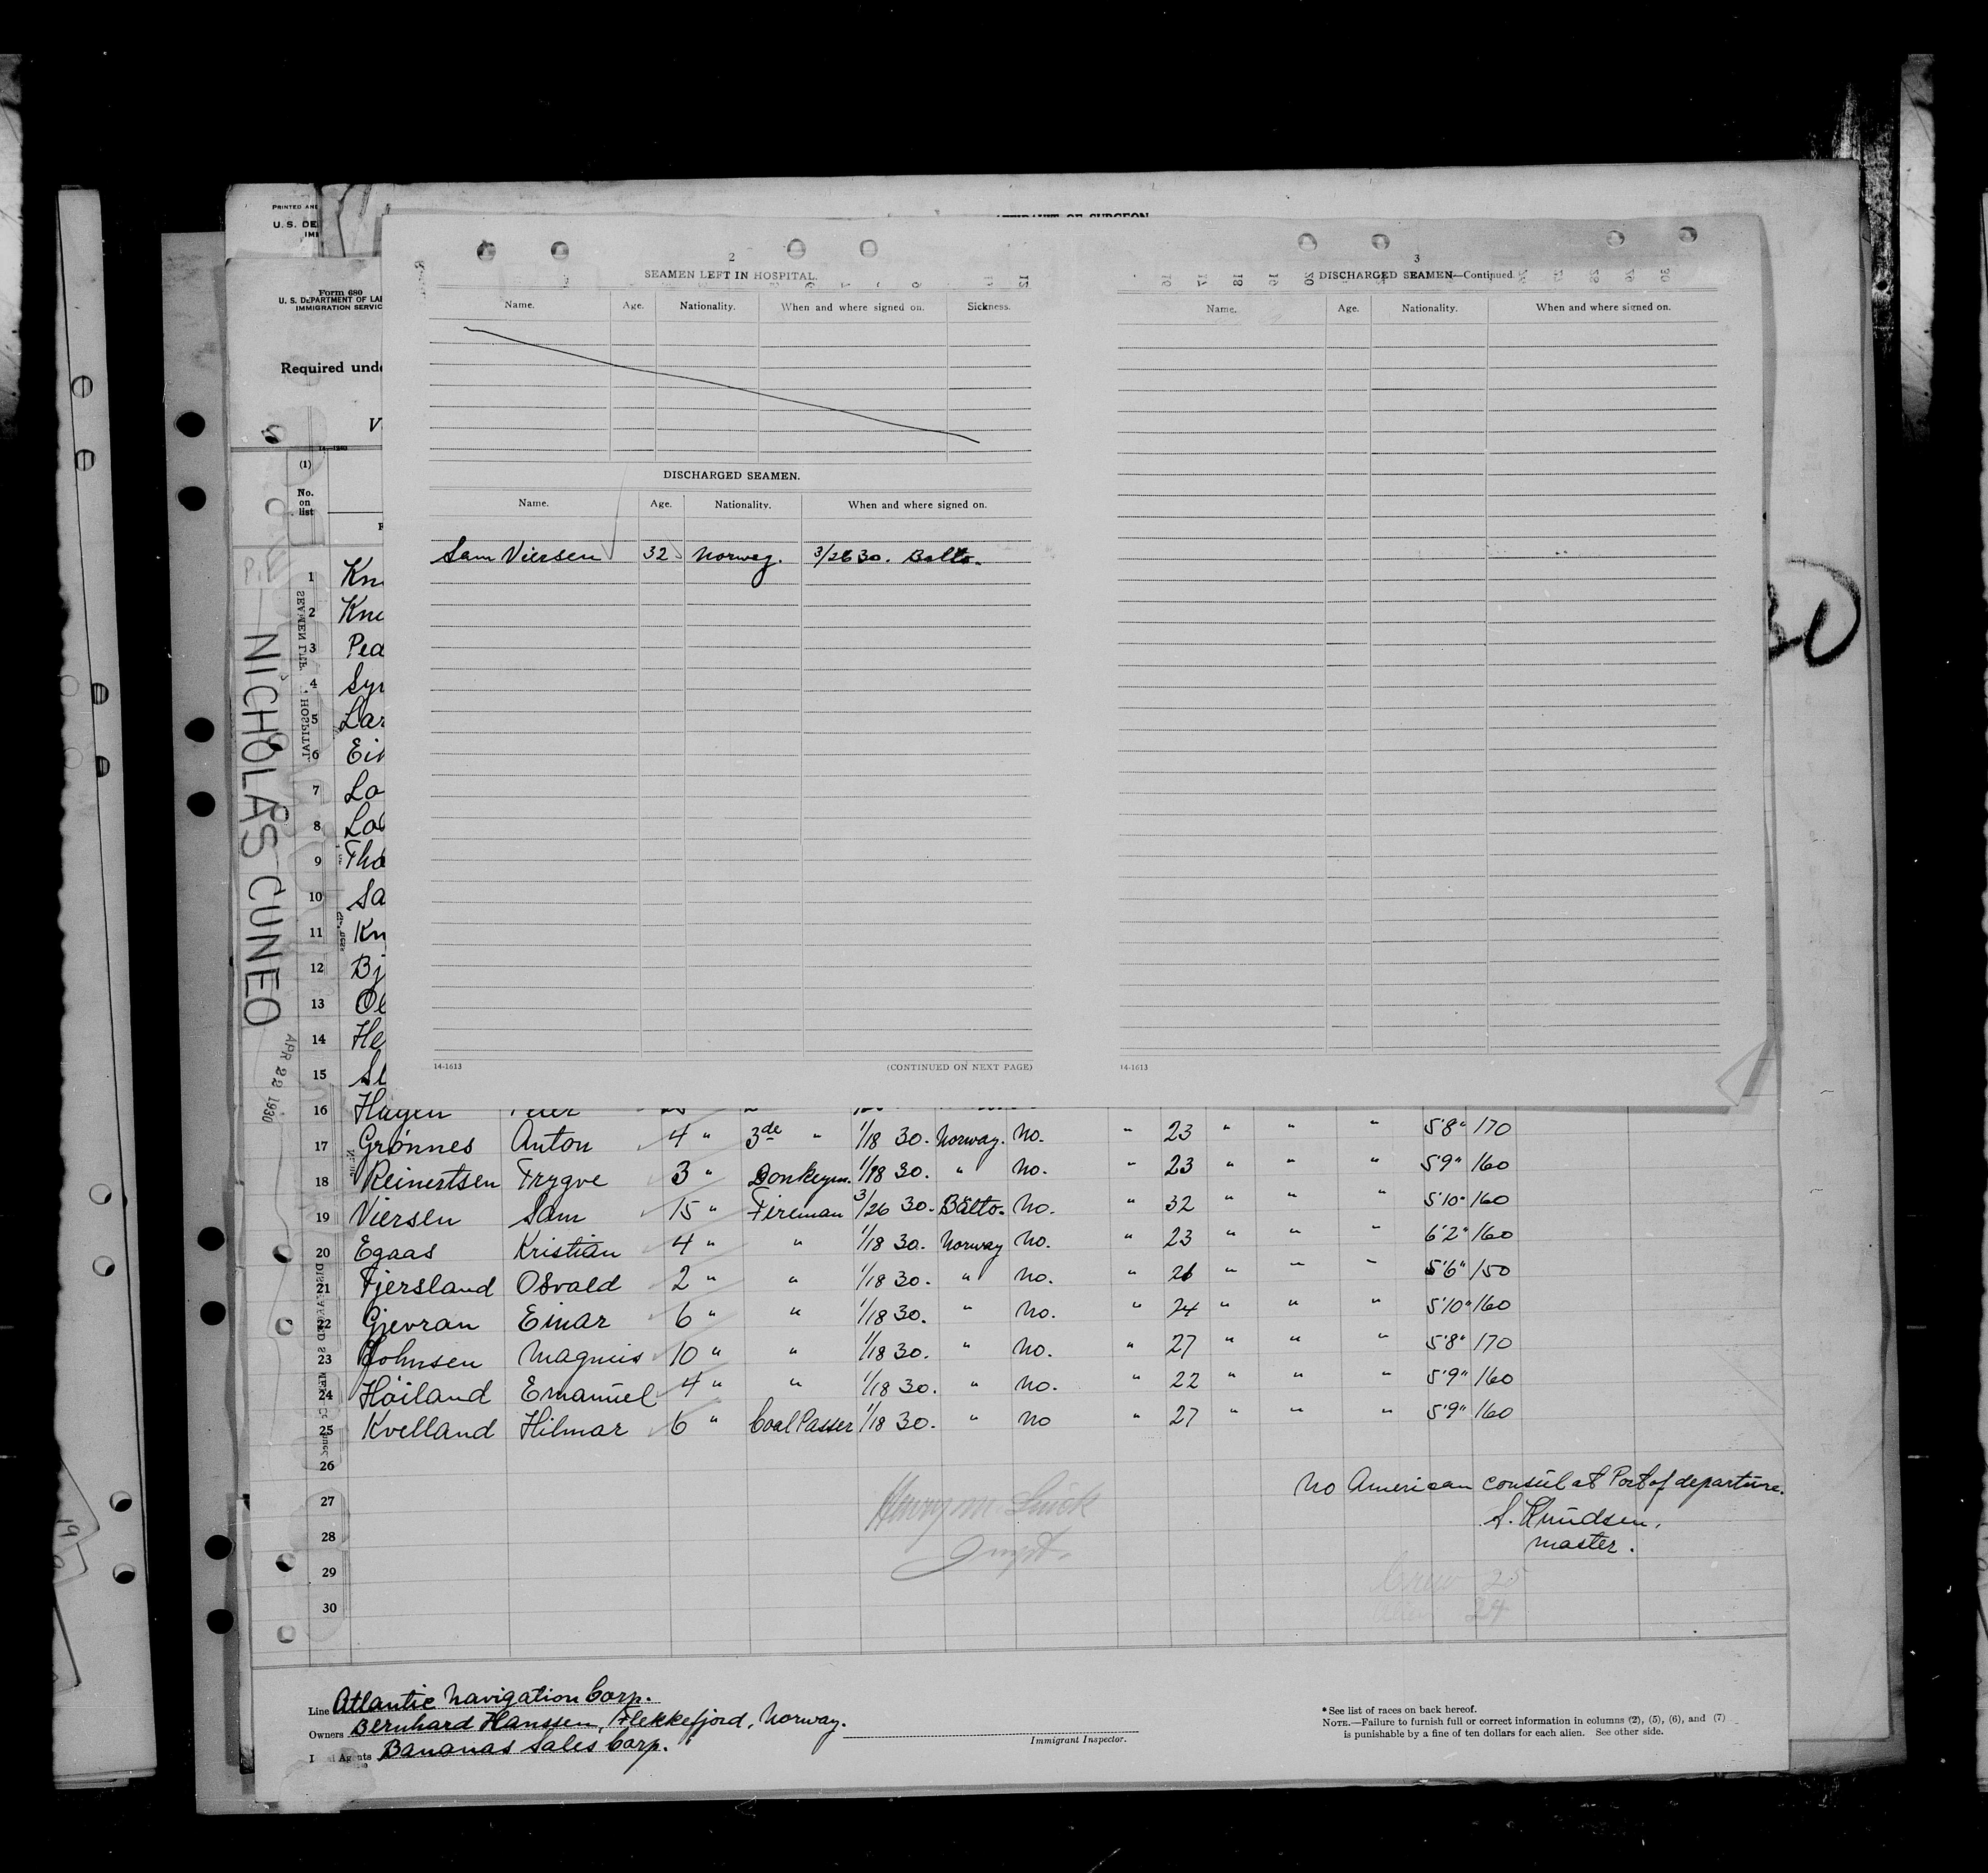 PRINTED AND
U. S. DE
IMM
Form 680
U. S. DEPARTMENT OF LAB
IMMIGRATION SERVIC
Required unde
V
(1)
No. on list
NICHOLAS CUNEO
APR 22 1930
2
SEAMEN LEFT IN HOSPITAL.
Name. Age. Nationality. When and where signed on. Sickness.
DISCHARGED SEAMEN.
Name. Age. Nationality. When and where signed on.
Sam Viersen 32 Norweg. 3/26 30. Balto.
14-1613 (CONTINUED ON NEXT PAGE)
3
DISCHARGED SEAMEN—Continued.
Name. Age. Nationality. When and where signed on.
14-1613
1 Kn
2 Knu
3 Ped
4 Syv
5 Lar
6 Ein
7 La
8 La
9 Tho
10 Sa
11 Kn
12 Bj
13 Ol
14 He
15 Sl
16 Hagen
17 Grönnes Anton 4 " 3de " 1/18 30. Norway. No. " 23 " " " 5'8" 170
18 Reinertsen Trygve 3 " Donkeym. 1/18 30. " No. " 23 " " " 5'9" 160
19 Viersen Sam 15 " Fireman 3/26 30. Balto. No. " 32 " " " 5'10" 160
20 Egaas Kristian 4 " " 1/18 30. Norway No. " 23 " " " 6'2" 160
21 Fjersland Osvald 2 " " 1/18 30. " No. " 26 " " " 5'6" 150
22 Gjevran Einar 6 " " 1/18 30. " No. " 24 " " " 5'10" 160
23 Johnsen Magnus 10 " " 1/18 30. " No. " 27 " " " 5'8" 170
24 Höiland Emanuel 4 " " 1/18 30. " No. " 22 " " " 5'9" 160
25 Kvelland Hilmar 6 " Coal Passer 1/18 30. " No " 27 " " " 5'9" 160
26
27
28
29
30
No American consul at Port of departure.
S. Knudsen,
master.
Crew 25
24
Line Atlantic Navigation Corp.
Owners Bernhard Hanssen, Flekkefjord, Norway.
Agents Bananas Sales Corp.
Immigrant Inspector.
* See list of races on back hereof.
NOTE.—Failure to furnish full or correct information in columns (2), (5), (6), and (7)
is punishable by a fine of ten dollars for each alien. See other side.